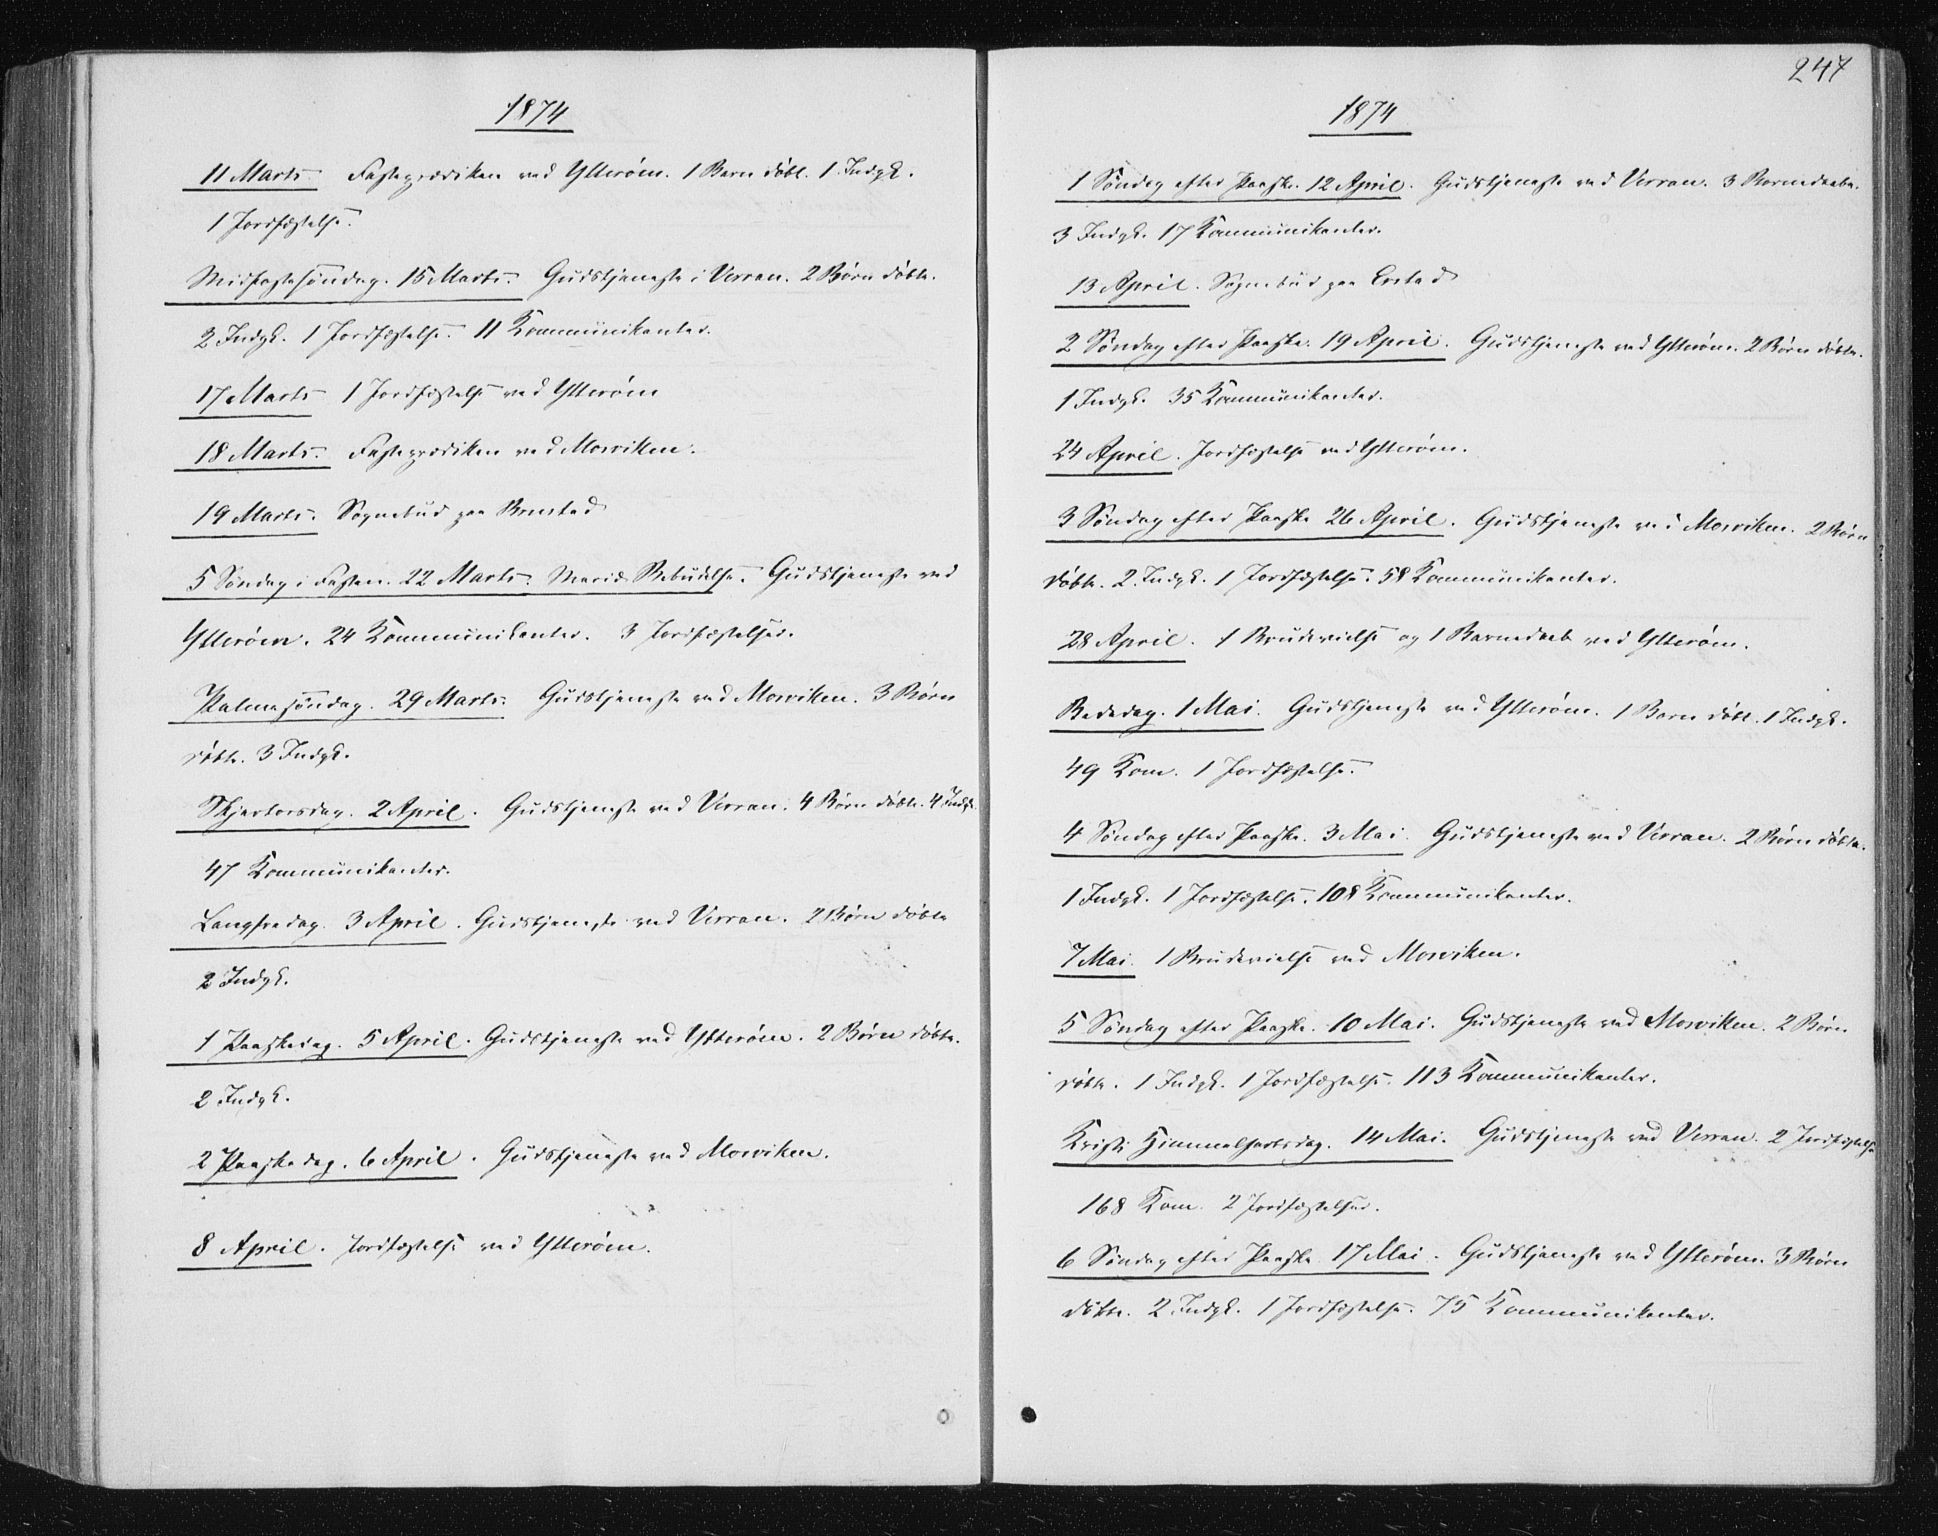 1874
11 Marts. Fasteprædiken ved Ytterøen. 1 Barn døbt. 1 Indgk.
1 Jordfæstelse.
Midfastesøndag. 15 Marts. Gudstjeneste i Verran. 2 Børn døbte.
2 Indgk. 1 Jordfæstelse. 11 Kommunikanter.
17 Marts 1 Jordfæstelse ved Ytterøen
18 Marts. Fasteprædiken ved Mosviken.
19 Marts. Sognebud paa
5 Søndag i Fasten. 22 Marts. Mariæ Bebudelse. Gudstjeneste ved
Ytterøen. 24 Kommunikanter. 3 Jordfæstelser.
Palmesøndag. 29 Marts. Gudstjeneste ved Mosviken. 3 Børn
døbte. 3 Indgk.
Skjærtorsdag. 2 April. Gudstjeneste ved Verran. 4 Børn døbte. 4 Indgk.
47 Kommunikanter.
Langfredag. 3 April. Gudstjeneste ved Verran. 2 Børn døbte
2 Indgk.
1 Paaskedag. 5 April. Gudstjeneste ved Ytterøen. 2 Børn døbte.
2 Indgk.
2 Paaskedag. 6 April. Gudstjeneste ved Mosviken.
8 April. Jordfæstelse ved Ytterøen.
247
1874
1 Søndag efter Paaske. 12 April. Gudstjeneste ved Verran. 3 Barnedaabe.
3 Indgk. 17 Kommunikanter.
13 April. Sognebud paa
2 Søndag efter Paaske. 19 April. Gudstjeneste ved Ytterøen. 2 Børn døbte.
1 Indgk. 35 Kommunikanter.
24 April. Jordfæstelse ved Ytterøen.
3 Søndag efter Paaske 26 April. Gudstjeneste ved Mosviken. 2 Børn
døbte. 2 Indgk. 1 Jordfæstelse. 58 Kommunikanter.
28 April. 1 Brudevielse og 1 Barnedaab ved Ytterøen.
Bededag. 1 Mai. Gudstjeneste ved Ytterøen. 1 Barn døbt. 1 Indgk.
49 Kom. 1 Jordfæstelse.
4 Søndag efter Paaske. 3 Mai. Gudstjeneste ved Verran. 2 Børn døbte.
1 Indgk. 1 Jordfæstelse. 108 Kommunikanter.
7 Mai. 1 Brudevielse ved Mosviken.
5 Søndag efter Paaske. 10 Mai. Gudstjeneste ved Mosviken. 2 Børn
døbte. 1 Indgk. 1 Jordfæstelse. 113 Kommunikanter.
Kristi Himmelfartsdag. 14 Mai. Gudstjeneste ved Verran. 2 Jordfæstelse
168 Kom. 2 Jordfæstelser.
6 Søndag efter Paaske 17 Mai. Gudstjeneste ved Ytterøen. 3 Børn
døbte. 2 Indgk. 1 Jordfæstelse. 75 Kommunikanter.